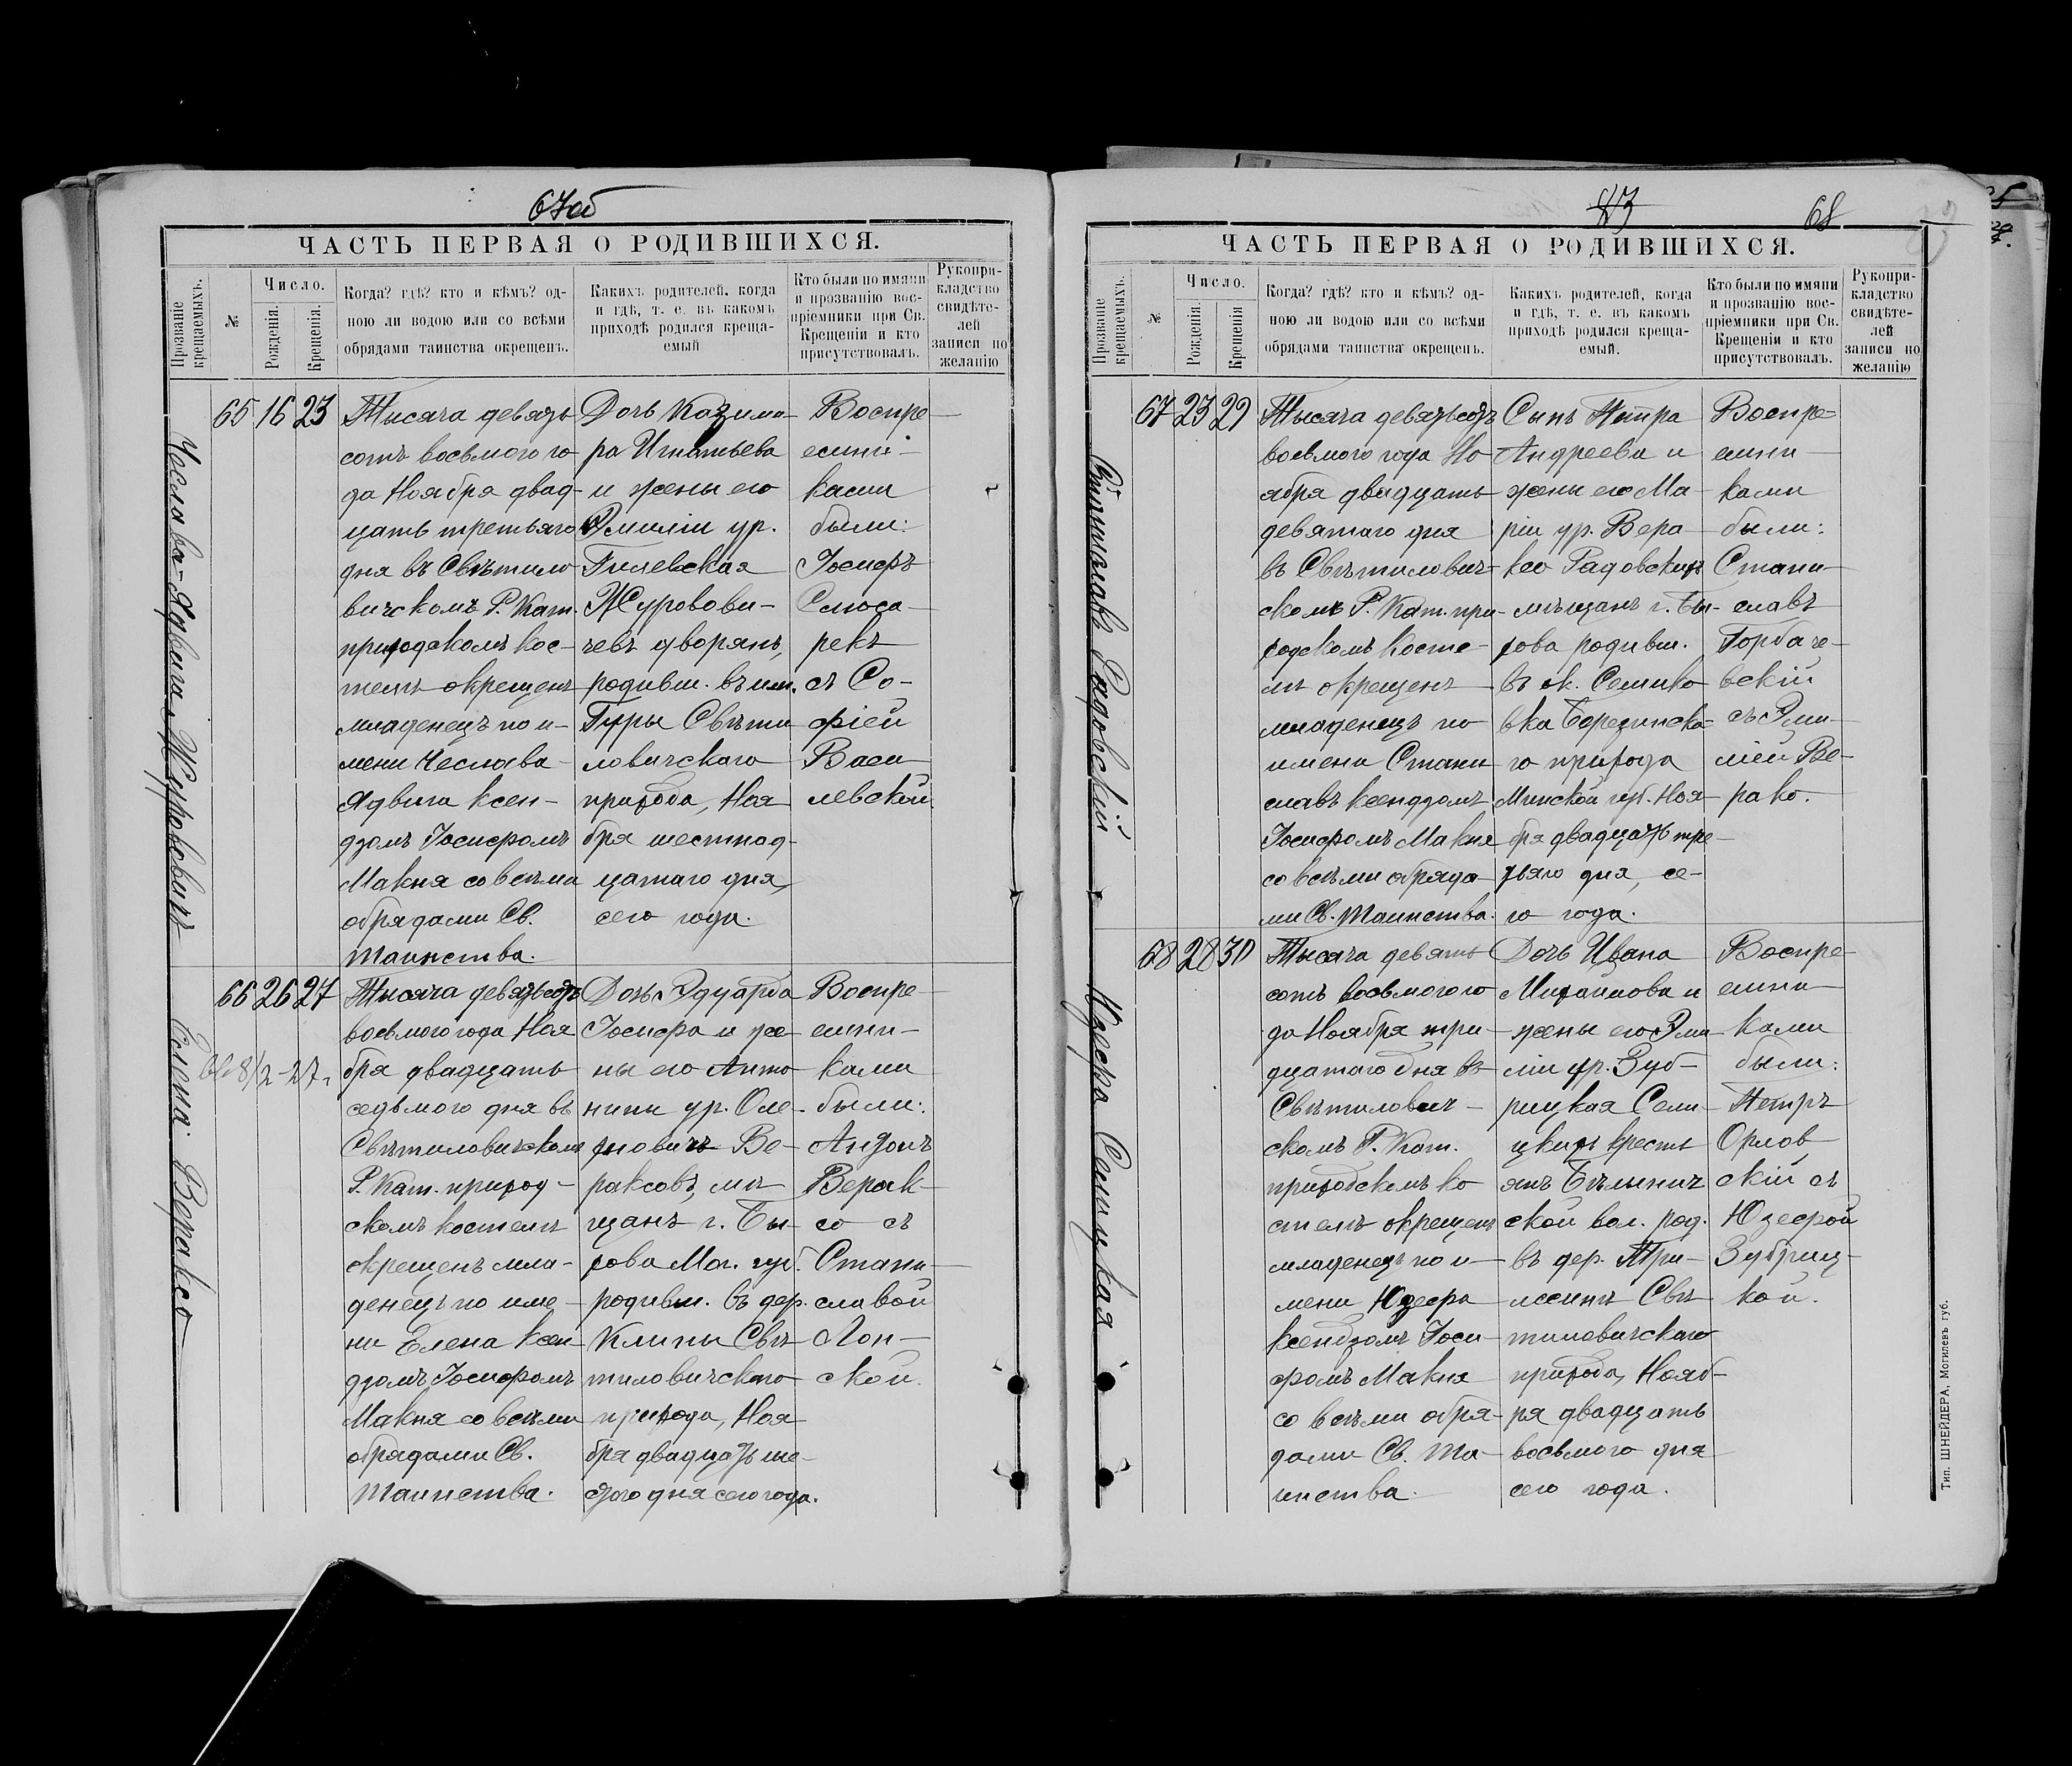 67об
ЧАСТЬ ПЕРВАЯ О РОДИВШИХСЯ.
Прозваніе крещаемыхъ.
№
Число.
Рожденія.
Крещенія.
Когда? гдѣ? кто и кѣмъ? од-
ною ли водою или со всѣми
обрядами таинства окрещенъ.
Какихъ родителей, когда
и гдѣ, т. е. въ какомъ
приходѣ родился креща-
емый
Кто были по имяни
и прозванію вос-
пріемники при Св.
Крещеніи и кто
присутствовалъ.
Рукопри-
кладство
свидѣте-
лей
записи по
желанію
Чеслава-Ядвига Журовович
65 16 23
Тысяча девять
сотъ восьмого го
да Ноября двад-
цать третьяго
дня въ Свѣтило
вичскомъ Р. Кат.
приходскомъ кос-
телѣ окрещенъ
младенецъ по и-
мени Чеслава
Ядвига ксен-
дзомъ Іосифомъ
Макня со всѣми
обрядами Св.
Таинства.
Дочь Казими
ра Игнатьева
и жены его
Эмиліи ур.
Гилевская
Журовови-
чевъ дворянъ,
родивш. въ им.
Гуры Свѣти
ловичскаго
прихода, Ноя
бря шестнад-
цатаго дня,
сего года.
Воспре
емни-
ками
были:
Іосифъ
Слюса-
рекъ
съ Со-
фіей
Васи
левской
Елена Верако
66 26 27
Тысяча девятьсотъ
восьмого года Ноя
бря двадцать
седьмого дня въ
Свѣтиловичскомъ
Р. Кат. приход-
скомъ костелѣ
окрещенъ мла-
денецъ по име-
ни Елена ксен
дзомъ Іосифомъ
Макня со всѣми
обрядами Св.
Таинства.
Дочь Эдуарда
Іосифа и же-
ны его Анто
нины ур. Оле-
хновичъ Ве-
раксовъ, мѣ
щанъ г. Бы-
хова Мог. губ.
родивш. въ дер.
Клины Свѣ
тиловичскаго
прихода, Ноя
бря двадцать ше-
стого дня сего года.
Воспре-
емни-
ками
были:
Антонъ
Верак-
со съ
Стани-
славой
Лон-
ской.
83
68
ЧАСТЬ ПЕРВАЯ О РОДИВШИХСЯ.
Прозваніе крещаемыхъ.
№
Число.
Рожденія.
Крещенія
Когда? гдѣ? кто и кѣмъ? од-
ною ли водою или со всѣми
обрядами таинства окрещенъ.
Какихъ родителей, когда
и гдѣ, т. е. въ какомъ
приходѣ родился креща-
емый.
Кто были по имяни
и прозванію вос-
пріемники при Св.
Крещеніи и кто
присутствовалъ.
Рукопри-
кладство
свидѣте-
лей
записи по
желанію
Станиславъ Радовскій
67 23 29
Тысяча девятьсотъ
восьмого года Но
ября двадцать
девятаго дня
въ Свѣтилович-
скомъ Р. Кат. при-
ходскомъ косте-
лѣ окрещенъ
младенецъ по
имени Стани
славъ ксендзомъ
Іосифомъ Макня
со всѣми обряда-
ми Св. Таинства.
Сынъ Петра
Андреева и
жены его Ма-
ріи ур. Вера
ксо Радовскихъ
мѣщанъ г. Бы-
хова родивш.
въ ок. Селико
вка Березинска-
го прихода
Минской губ. Ноя
бря двадцать тре-
тьяго дня, се-
го года.
Воспре=
емни
ками
были:
Стани
славъ
Горбаче-
вскій
съ Эми-
ліей Ве-
рако.
Юзефа Селицкая
68 28 30
Тысяча девять
сотъ восьмого го
да Ноября три-
дцатаго дня въ
Свѣтилович-
скомъ Р. Кат.
приходскомъ ко
стелѣ окрещенъ
младенецъ по и-
мени Юзефа
ксендзомъ Іоси-
фомъ Макня
со всѣми обря-
дами Св. Та-
инства.
Дочь Ивана
Михайлова и
жены его Эми
ліи ур. Зуб-
рицкая Сели-
цкихъ кресть
янъ Бѣлынич
ской вол. род.
въ дер. При-
лѣсинѣ Свѣ
тиловичскаго
прихода, Нояб-
ря двадцать
восьмого дня
сего года.
Воспре
емни
ками
были:
Петръ
Орлов
скій съ
Юзефой
Зубриц-
кой.
Тип. ШНЕЙДЕРА, Могилевъ губ.